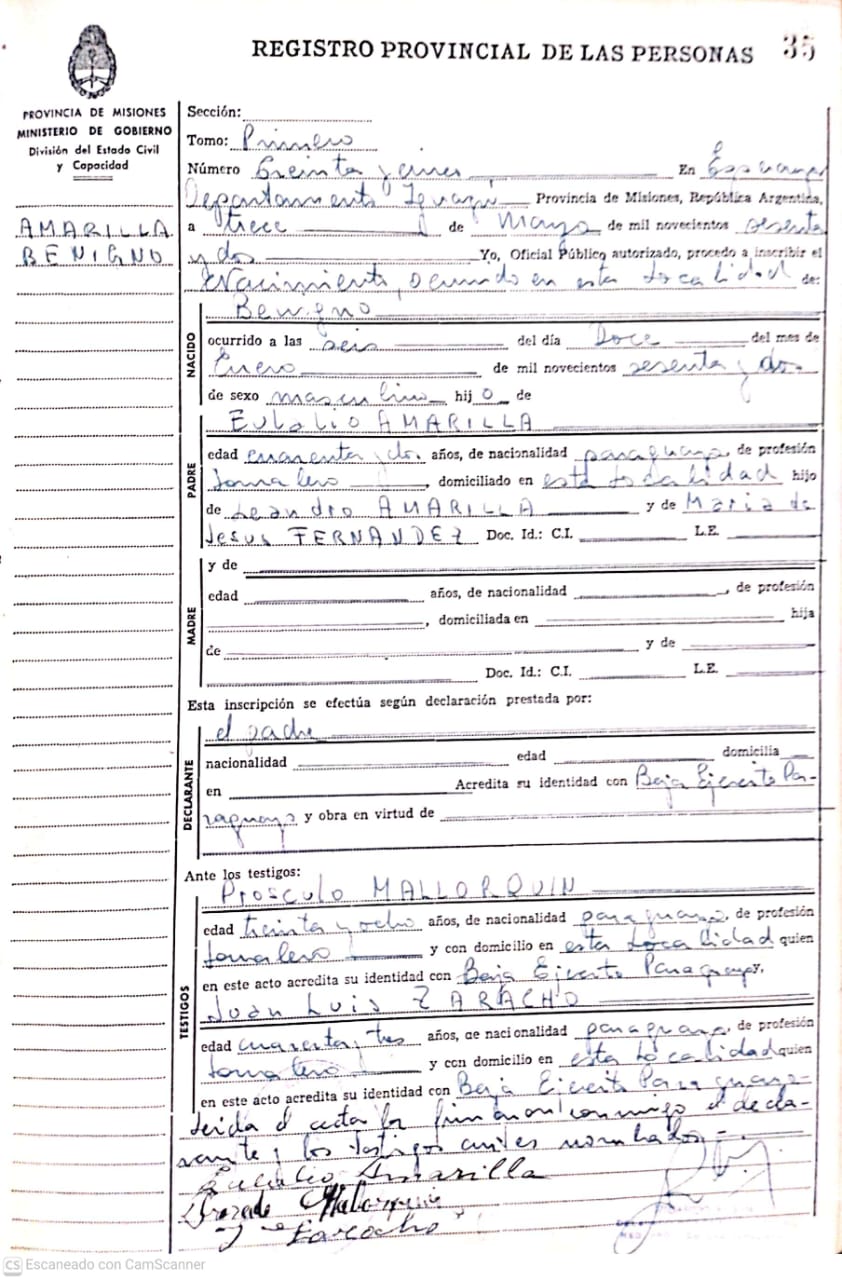 REGISTRO PROVINCIAL DE LAS PERSONAS 35
PROVINCIA DE MISIONES
MINISTERIO DE GOBIERNO
División del Estado Civil
y Capacidad
AMARILLA
BENIGNO
Sección:
Tomo: Primero
Número Treinta y En Esperanza
Departamento Iguazú Provincia de Misiones, República Argentina,
a trece de Mayo de mil novecientos sesenta
y dos Yo, Oficial Público autorizado, procedo a inscribir el
Nacimiento, ocurrido en esta localidad de:
Benigno
NACIDO
ocurrido a las seis del día Doce del mes de
Enero de mil novecientos sesenta y dos
de sexo masculino hijo de
EULALIO AMARILLA
PADRE
edad cuarenta y dos años, de nacionalidad paraguaya, de profesión
Jornalero, domiciliado en esta localidad hijo
de Leandro AMARILLA y de Maria de
Jesus FERNANDEZ Doc. Id.: C.I. L.E.
MADRE
y de
edad años, de nacionalidad , de profesión
, domiciliada en hija
de y de
Doc. Id.: C.I. L.E.
Esta inscripción se efectúa según declaración prestada por:
DECLARANTE
el padre
nacionalidad edad domicilia
en Acredita su identidad con Baja Ejercito Pa-
raguayo y obra en virtud de
Ante los testigos:
TESTIGOS
Prosculo MALLORQUIN
edad treinta y ocho años, de nacionalidad paraguaya, de profesión
Jornalero y con domicilio en esta localidad quien
en este acto acredita su identidad con Baja Ejercito Paraguayo y,
Juan Luis ZARACHO
edad cuarenta y tres años, de nacionalidad paraguaya, de profesión
Jornalero y con domicilio en esta localidad quien
en este acto acredita su identidad con Baja Ejercito Paraguayo-
Leida el acta la firman conmigo el decla-
rante y los testigos antes nombrados.-
Eulalio Amarilla
Mallorquin
Zaracho
CS Escaneado con CamScanner